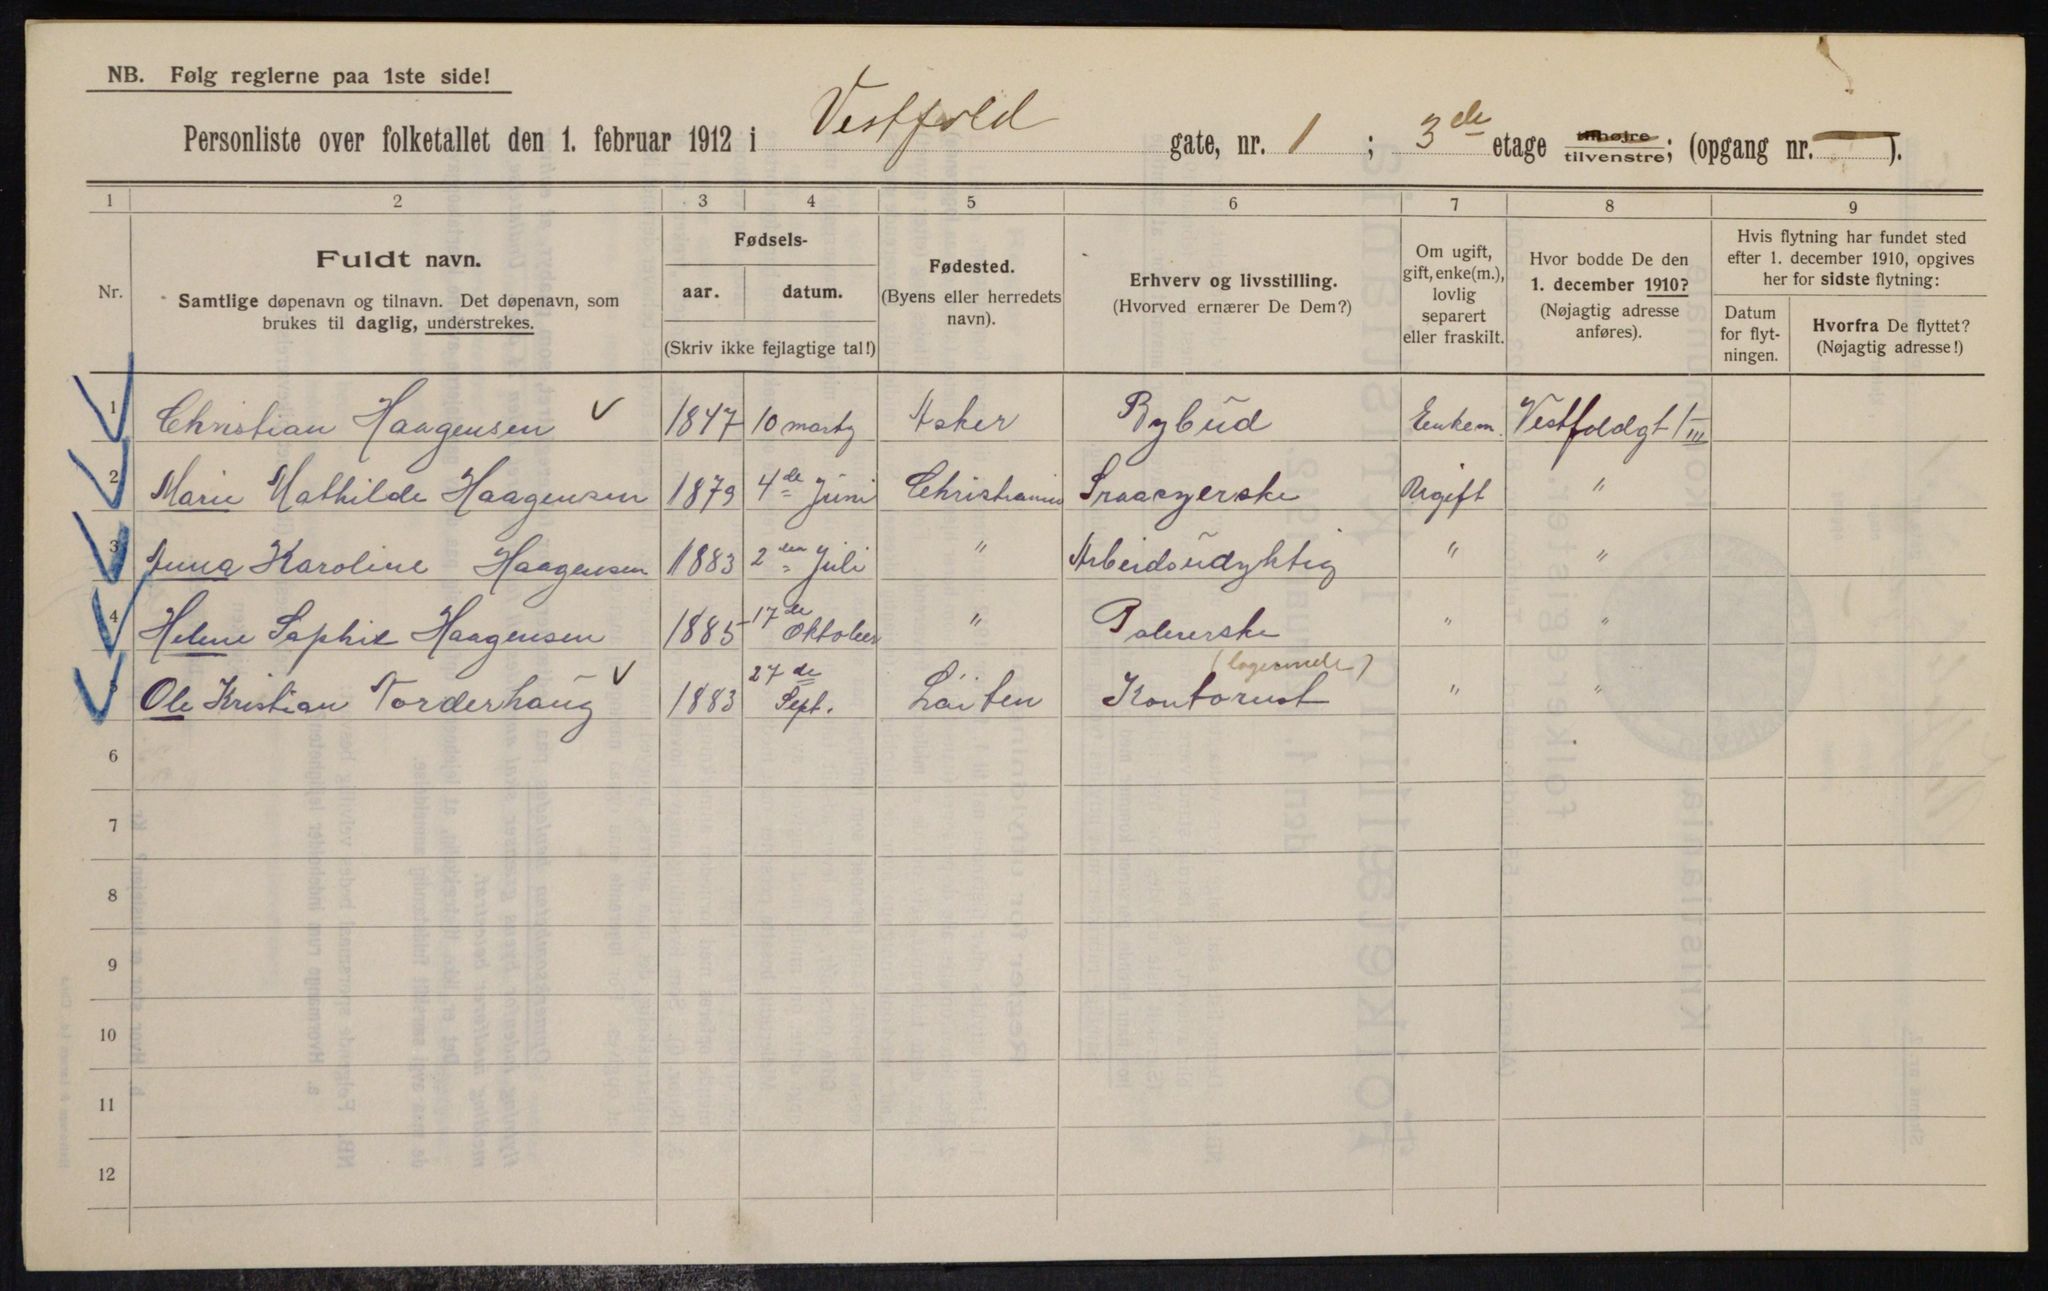 NB. Følg reglerne paa 1ste side!
Personliste over folketallet den 1. februar 1912 i Vestfold gate, nr. 1 ; 3de etage tilhøjre tilvenstre; (opgang nr. — ).
1 2 3 4 5 6 7 8 9
Nr.
Fuldt navn.
Samtlige døpenavn og tilnavn. Det døpenavn, som
brukes til daglig, understrekes.
Fødsels-
aar. datum.
(Skriv ikke fejlagtige tal!)
Fødested.
(Byens eller herredets
navn).
Erhverv og livsstilling.
(Hvorved ernærer De Dem?)
Om ugift,
gift, enke(m.),
lovlig
separert
eller fraskilt.
Hvor bodde De den
1. december 1910?
(Nøjagtig adresse
anføres).
Hvis flytning har fundet sted
efter 1. december 1910, opgives
her for sidste flytning:
Datum
for flyt-
ningen.
Hvorfra De flyttet?
(Nøjagtig adresse!)
1 Christian Haagensen 1847 10 marts Asker Bybud Enkem. Vestfoldgt 1/III
2 Marie Mathilde Haagensen 1879 4de Juni Christiania Ugift "
3 Anna Karoline Haagensen 1883 2den Juli " Arbeidsudyktig " "
4 Helene Sophie Haagensen 1885 17de Oktober " Polererske " "
5 Ole Kristian Torderhaug 1883 27de Sept. Löiten Kontorist (logerende) " "
6
7
8
9
10
11
12